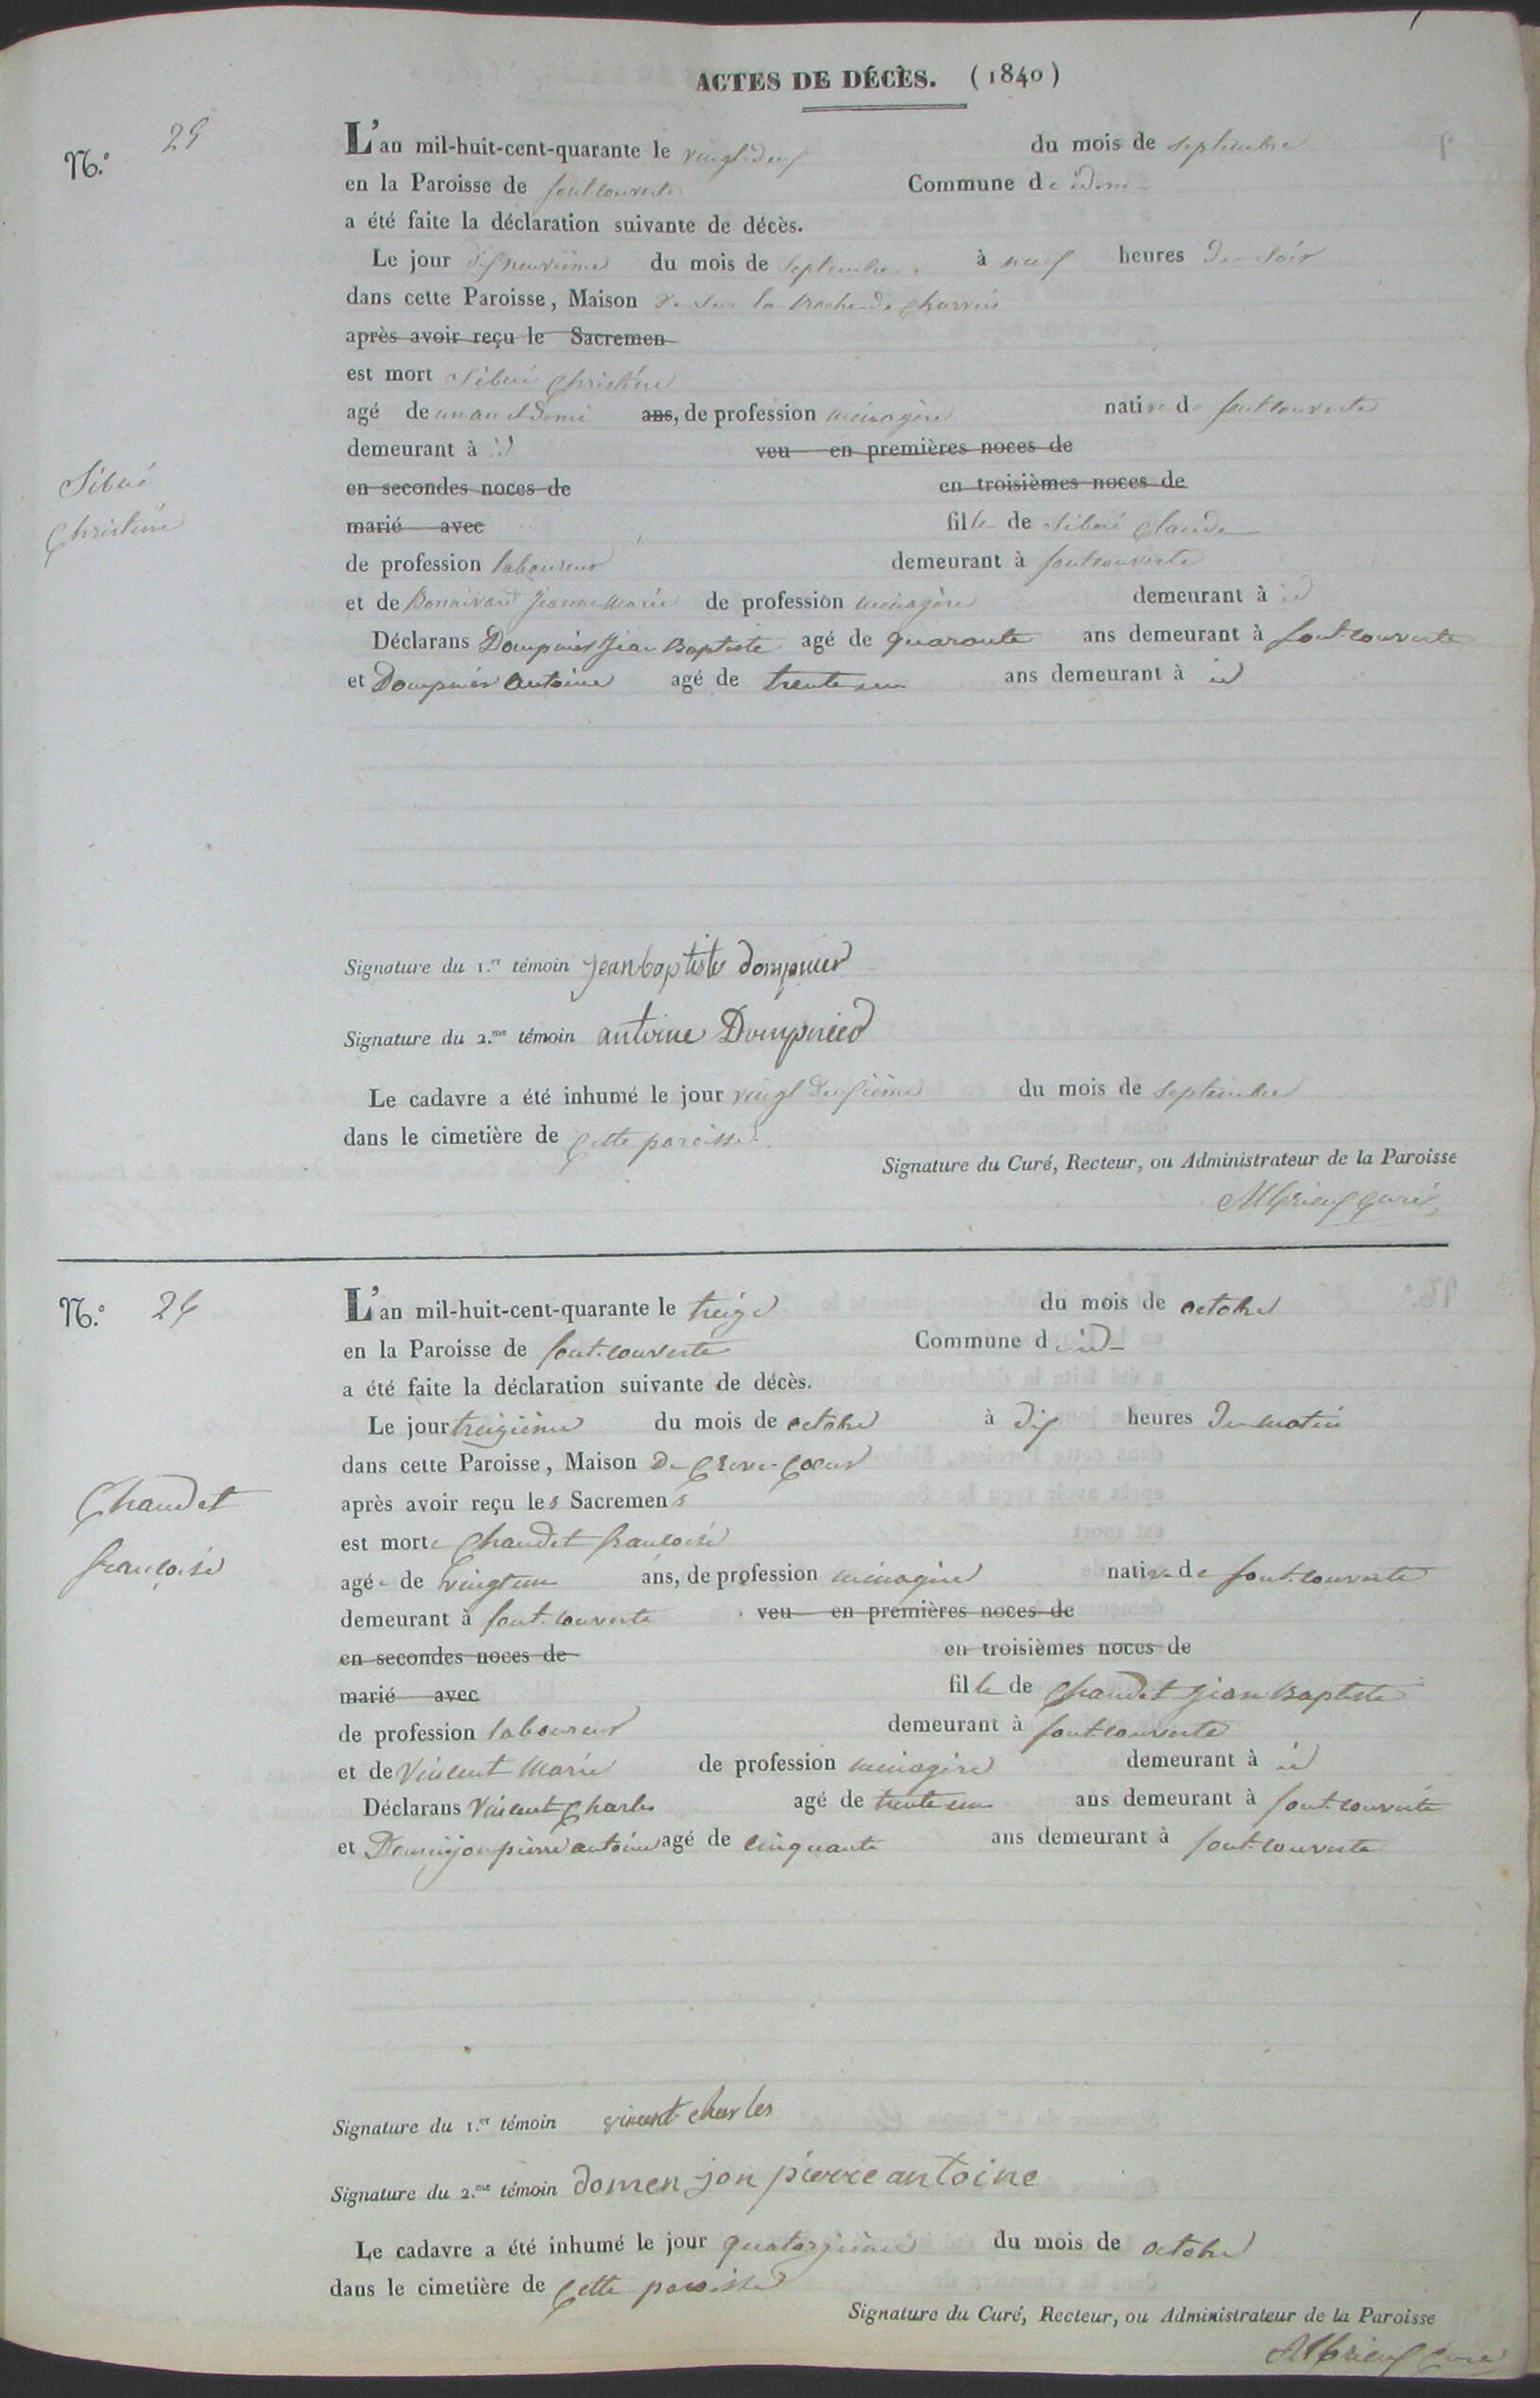 ACTES DE DÉCÈS. (1840)
N.° 25
L'an mil-huit-cent-quarante le vingt deux du mois de septembre
en la Paroisse de fontcouverte Commune de idem
a été faite la déclaration suivante de décès.
Le jour dixneuvième du mois de septembre à neuf heures du soir
dans cette Paroisse, Maison de sur la Roche de Charvin
après avoir reçu le Sacremen
est mort Sibué Christine
agé de un an et demi ans, de profession ménagère native de fontcouverte
demeurant à id veu en premières noces de
en secondes noces de en troisièmes noces de
Sibué
Christine
marié avec fille de Sibué Claude
de profession laboureur demeurant à fontcouverte
et de Bonnivard Jeanne Marie de profession ménagère demeurant à id
Déclarans Dompnier Jean Baptiste agé de quarante ans demeurant à font-couverte
et Dompnier Antoine agé de trente un ans demeurant à id
Signature du 1.er témoin jean baptiste dompnier
Signature du 2.me témoin antoine Dompnier
Le cadavre a été inhumé le jour vingt deuxième du mois de septembre
dans le cimetière de cette paroisse.
Signature du Curé, Recteur, ou Administrateur de la Paroisse
Albrieux curé
N.° 26
L'an mil-huit-cent-quarante le treize du mois de octobre
en la Paroisse de font-couverte Commune d id
a été faite la déclaration suivante de décès.
Le jour treizième du mois de octobre à dix heures du matin
dans cette Paroisse, Maison de Crève-Coeur
après avoir reçu les Sacremens
est morte Chaudet françoise
Chaudet
françoise
agée de vingt un ans, de profession ménagère native de font-couverte
demeurant à font-couverte veu en premières noces de
en secondes noces de en troisièmes noces de
marié avec fille de Chaudet Jean Baptiste
de profession laboureur demeurant à font-couverte
et de Vincent Marie de profession ménagère demeurant à id
Déclarans Vincent Charles agé de trente un ans demeurant à font-couverte
et Domenjon pierre antoine agé de cinquante ans demeurant à font-couverte
Signature du 1.er témoin vincent charles
Signature du 2.me témoin domen jon pierre antoine
Le cadavre a été inhumé le jour quatorzième du mois de octobre
dans le cimetière de cette paroisse
Signature du Curé, Recteur, ou Administrateur de la Paroisse
Albrieux curé